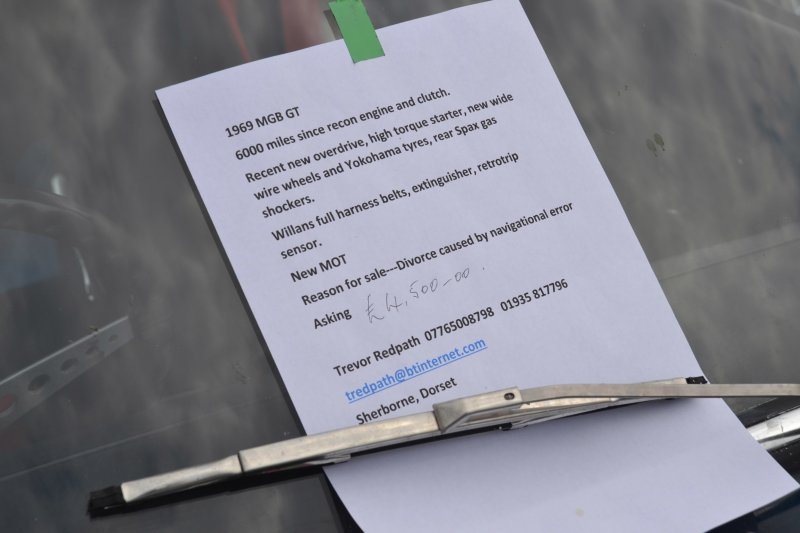 1969 MGB GT
6000 miles since recon engine and clutch.
Recent new overdrive, high torque starter, new wide
wire wheels and Yokohama tyres, rear Spax gas
shockers.
Willans full harness belts, extinguisher, retrotrip
sensor.
New MOT
Reason for sale---Divorce caused by navigational error
Asking £4,500-00.
Trevor Redpath 07765008798 01935 817796
tredpath@btinternet.com
Sherborne, Dorset